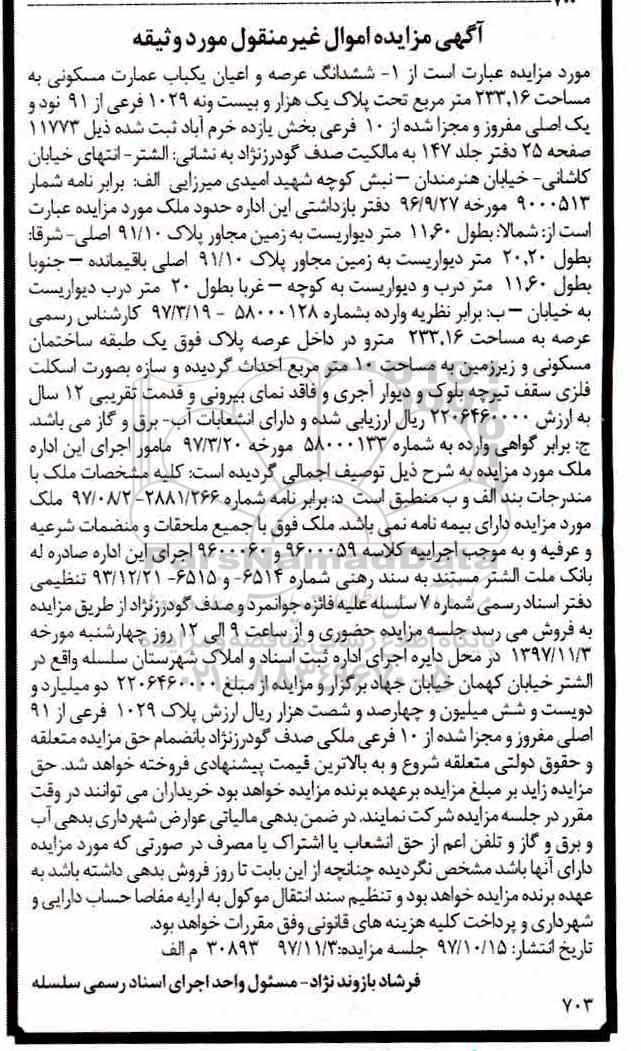 آگهی مزایده اموال غیرمنقول مورد وثیقه
مورد مزایده عبارت است از ۱- ششدانگ عرصه و اعیان یکباب عمارت مسکونی به
مساحت ۲۳۳,۱۶ متر مربع تحت پلاک یک هزار و بیست ونه ۱۰۲۹ فرعی از ۹۱ نود و
یک اصلی مفروز و مجزا شده از ۱۰ فرعی بخش یازده خرم آباد ثبت شده ذیل ۱۱۷۷۳
صفحه ۲۵ دفتر جلد ۱۴۷ به مالکیت صدف گودرزنژاد به نشانی: الشتر- انتهای خیابان
کاشانی- خیابان هنرمندان – نبش کوچه شهید امیدی میرزایی الف: برابر نامه شمار
۹۰۰۰۵۱۳ مورخه ۹۶/۹/۲۷ دفتر بازداشتی این اداره حدود ملک مورد مزایده عبارت
است از: شمالا: بطول ۱۱,۶۰ متر دیواریست به زمین مجاور پلاک ۹۱/۱۰ اصلی- شرقا:
بطول ۲۰,۲۰ متر دیواریست به زمین مجاور پلاک ۹۱/۱۰ اصلی باقیمانده – جنوبا
بطول ۱۱,۶۰ متر درب و دیواریست به کوچه – غربا بطول ۲۰ متر درب دیواریست
به خیابان – ب: برابر نظریه وارده بشماره ۵۸۰۰۰۱۲۸ - ۹۷/۳/۱۹ کارشناس رسمی
عرصه به مساحت ۲۳۳,۱۶ مترو در داخل عرصه پلاک فوق یک طبقه ساختمان
مسکونی و زیرزمین به مساحت ۱۰ متر مربع احداث گردیده و سازه بصورت اسکلت
فلزی سقف تیرچه بلوک و دیوار آجری و فاقد نمای بیرونی و قدمت تقریبی ۱۲ سال
به ارزش ۲۲۰۶۴۶۰۰۰۰ ریال ارزیابی شده و دارای انشعابات آب- برق و گاز می باشد.
ج: برابر گواهی وارده به شماره ۵۸۰۰۰۱۳۳ مورخه ۹۷/۳/۲۰ مامور اجرای این اداره
ملک مورد مزایده به شرح ذیل توصیف اجمالی گردیده است: کلیه مشخصات ملک با
مندرجات بند الف و ب منطبق است د: برابر نامه شماره ۲۸۸۱/۲۶۶- ۹۷/۰۸/۲ ملک
مورد مزایده دارای بیمه نامه نمی باشد. ملک فوق با جمیع ملحقات و منضمات شرعیه
و عرفیه و به موجب اجراییه کلاسه ۹۶۰۰۰۵۹ و ۹۶۰۰۰۶۰ اجرای این اداره صادره له
بانک ملت الشتر مستند به سند رهنی شماره ۶۵۱۴- و ۶۵۱۵- ۹۳/۱۲/۲۱ تنظیمی
دفتر اسناد رسمی شماره ۷ سلسله علیه فائزه جوانمرد و صدف گودرزنژاد از طریق مزایده
به فروش می رسد جلسه مزایده حضوری و از ساعت ۹ الی ۱۲ روز چهارشنبه مورخه
۱۳۹۷/۱۱/۳ در محل دایره اجرای اداره ثبت اسناد و املاک شهرستان سلسله واقع در
الشتر خیابان کهمان خیابان جهاد برگزار و مزایده از مبلغ ۲۲۰۶۴۶۰۰۰۰ دو میلیارد و
دویست و شش میلیون و چهارصد و شصت هزار ریال ارزش پلاک ۱۰۲۹ فرعی از ۹۱
اصلی مفروز و مجزا شده از ۱۰ فرعی ملکی صدف گودرزنژاد بانضمام حق مزایده متعلقه
و حقوق دولتی متعلقه شروع و به بالاترین قیمت پیشنهادی فروخته خواهد شد. حق
مزایده زاید بر مبلغ مزایده برعهده برنده مزایده خواهد بود خریداران می توانند در وقت
مقرر در جلسه مزایده شرکت نمایند. در ضمن بدهی مالیاتی عوارض شهرداری بدهی آب
و برق و گاز و تلفن اعم از حق انشعاب یا اشتراک یا مصرف در صورتی که مورد مزایده
دارای آنها باشد مشخص نگردیده چنانچه از این بابت تا روز فروش بدهی داشته باشد به
عهده برنده مزایده خواهد بود و تنظیم سند انتقال موکول به ارایه مفاصا حساب دارایی و
شهرداری و پرداخت کلیه هزینه های قانونی وفق مقررات خواهد بود.
تاریخ انتشار: ۹۷/۱۰/۱۵ جلسه مزایده:۹۷/۱۱/۳ ۳۰۸۹۳ م الف
فرشاد بازوند نژاد- مسئول واحد اجرای اسناد رسمی سلسله
۷۰۳